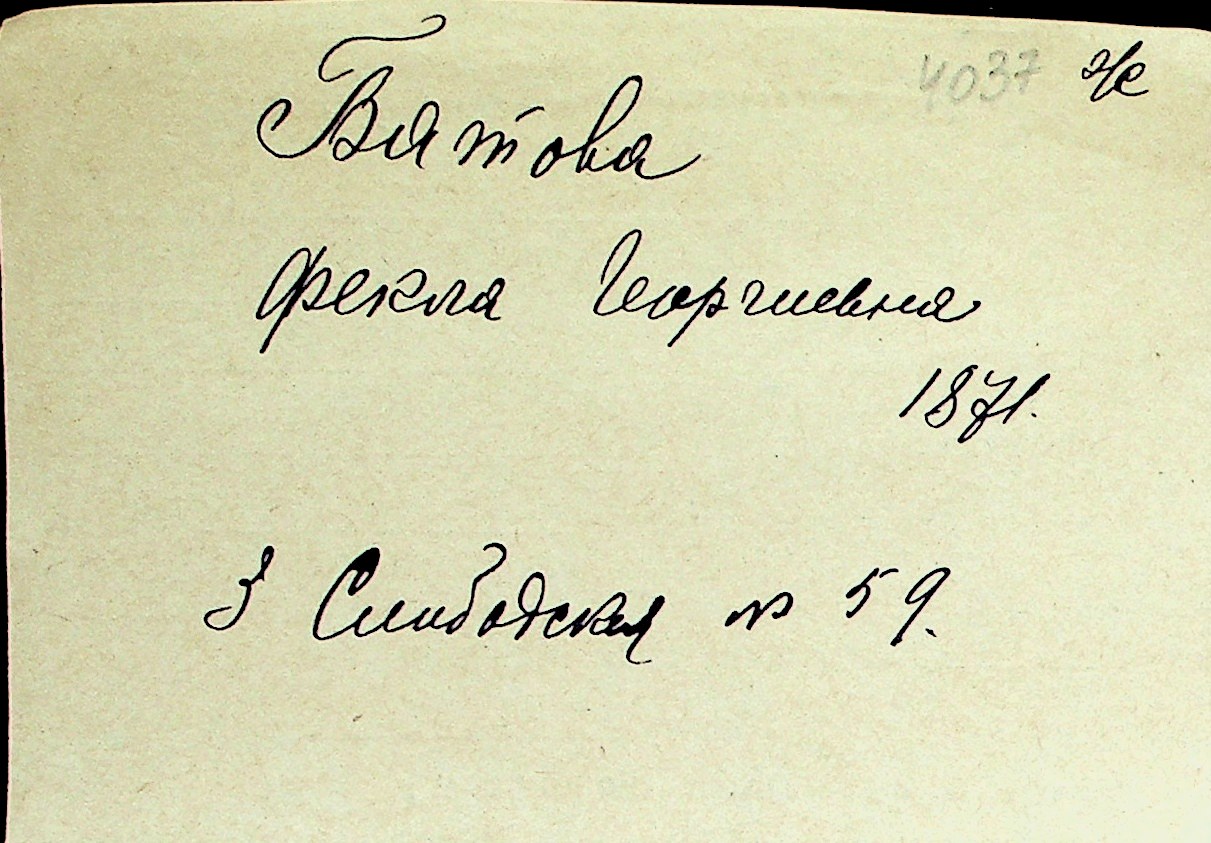 4037 ж
Вятова
Фекла Георгиевна
1871.
3 Слободская № 59.